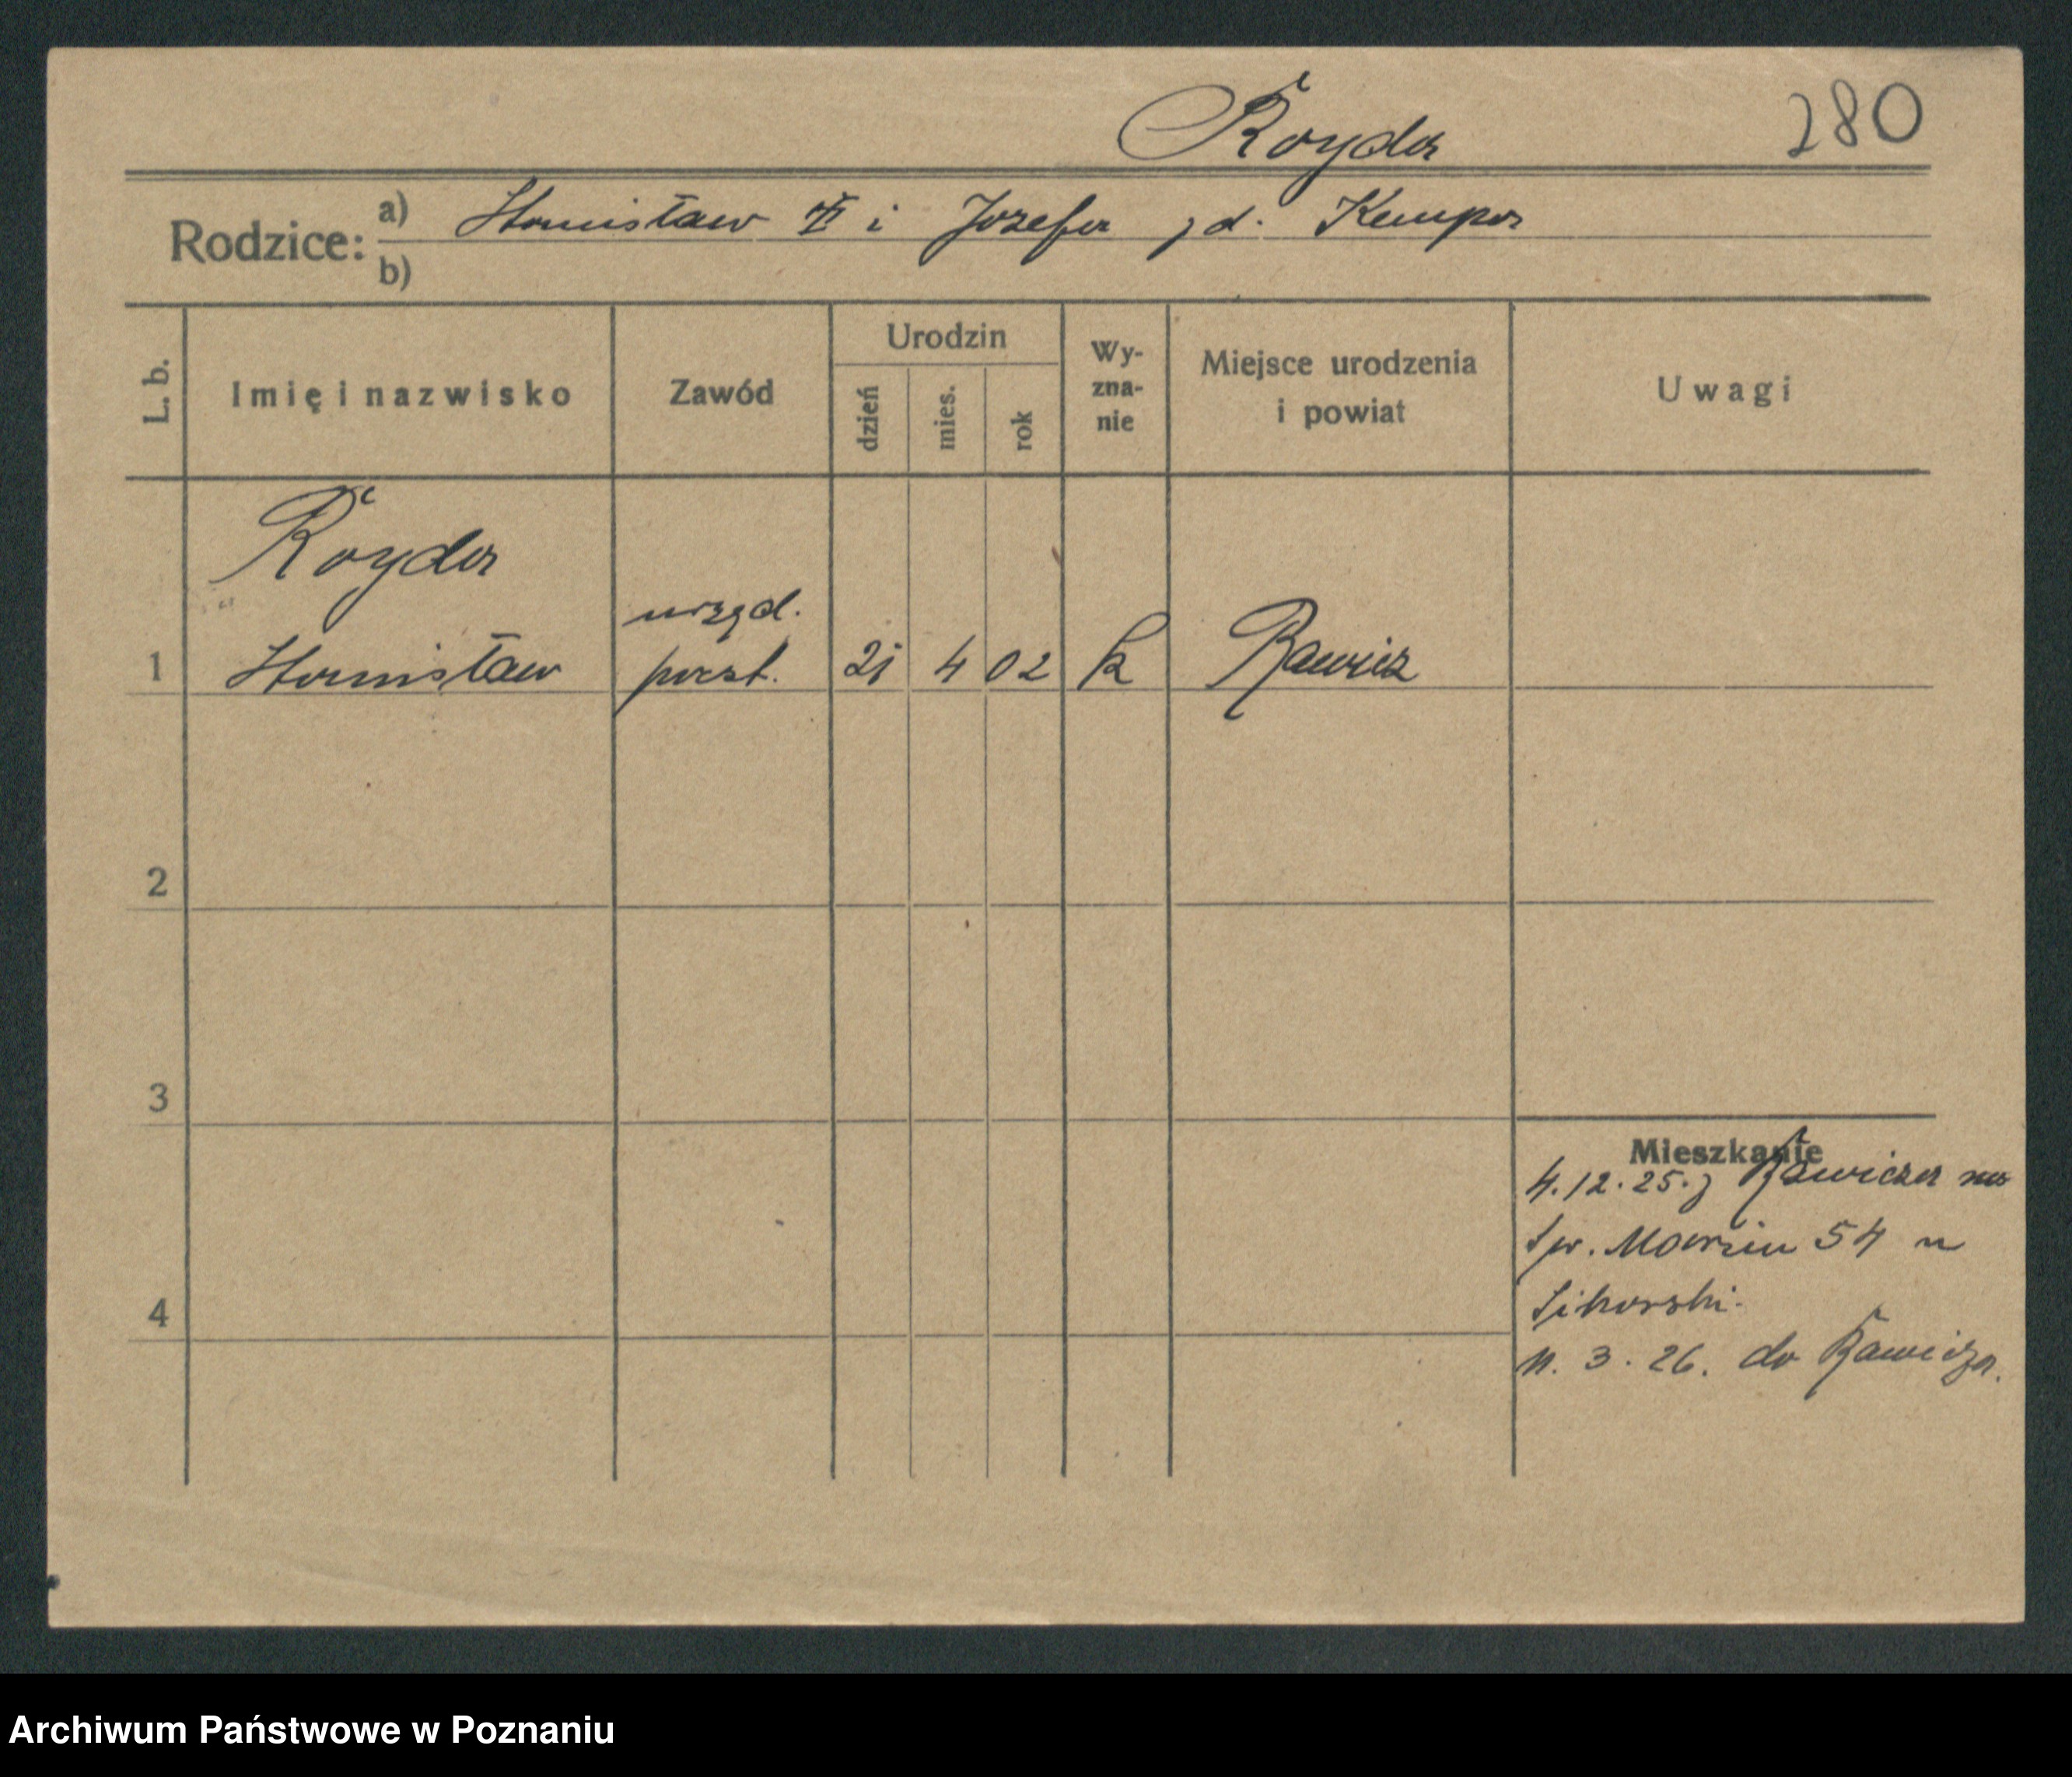 Rozda
280
Rodzice: a) Stanisław VI i Józefa z d. Kempa
b)
L. b.
Imię i nazwisko
Zawód
Urodzin
dzień
mies.
rok
Wy-
zna-
nie
Miejsce urodzenia
i powiat
Uwagi
Rozda
urzęd.
1 Stanisław poczt. 21 4 02 k Rawicz
2
3
4
Mieszkanie
4.12.25. z Rawicza na
Św. Marcin 54 u
Sikorski.
11. 3. 26. do Rawicza.
Archiwum Państwowe w Poznaniu